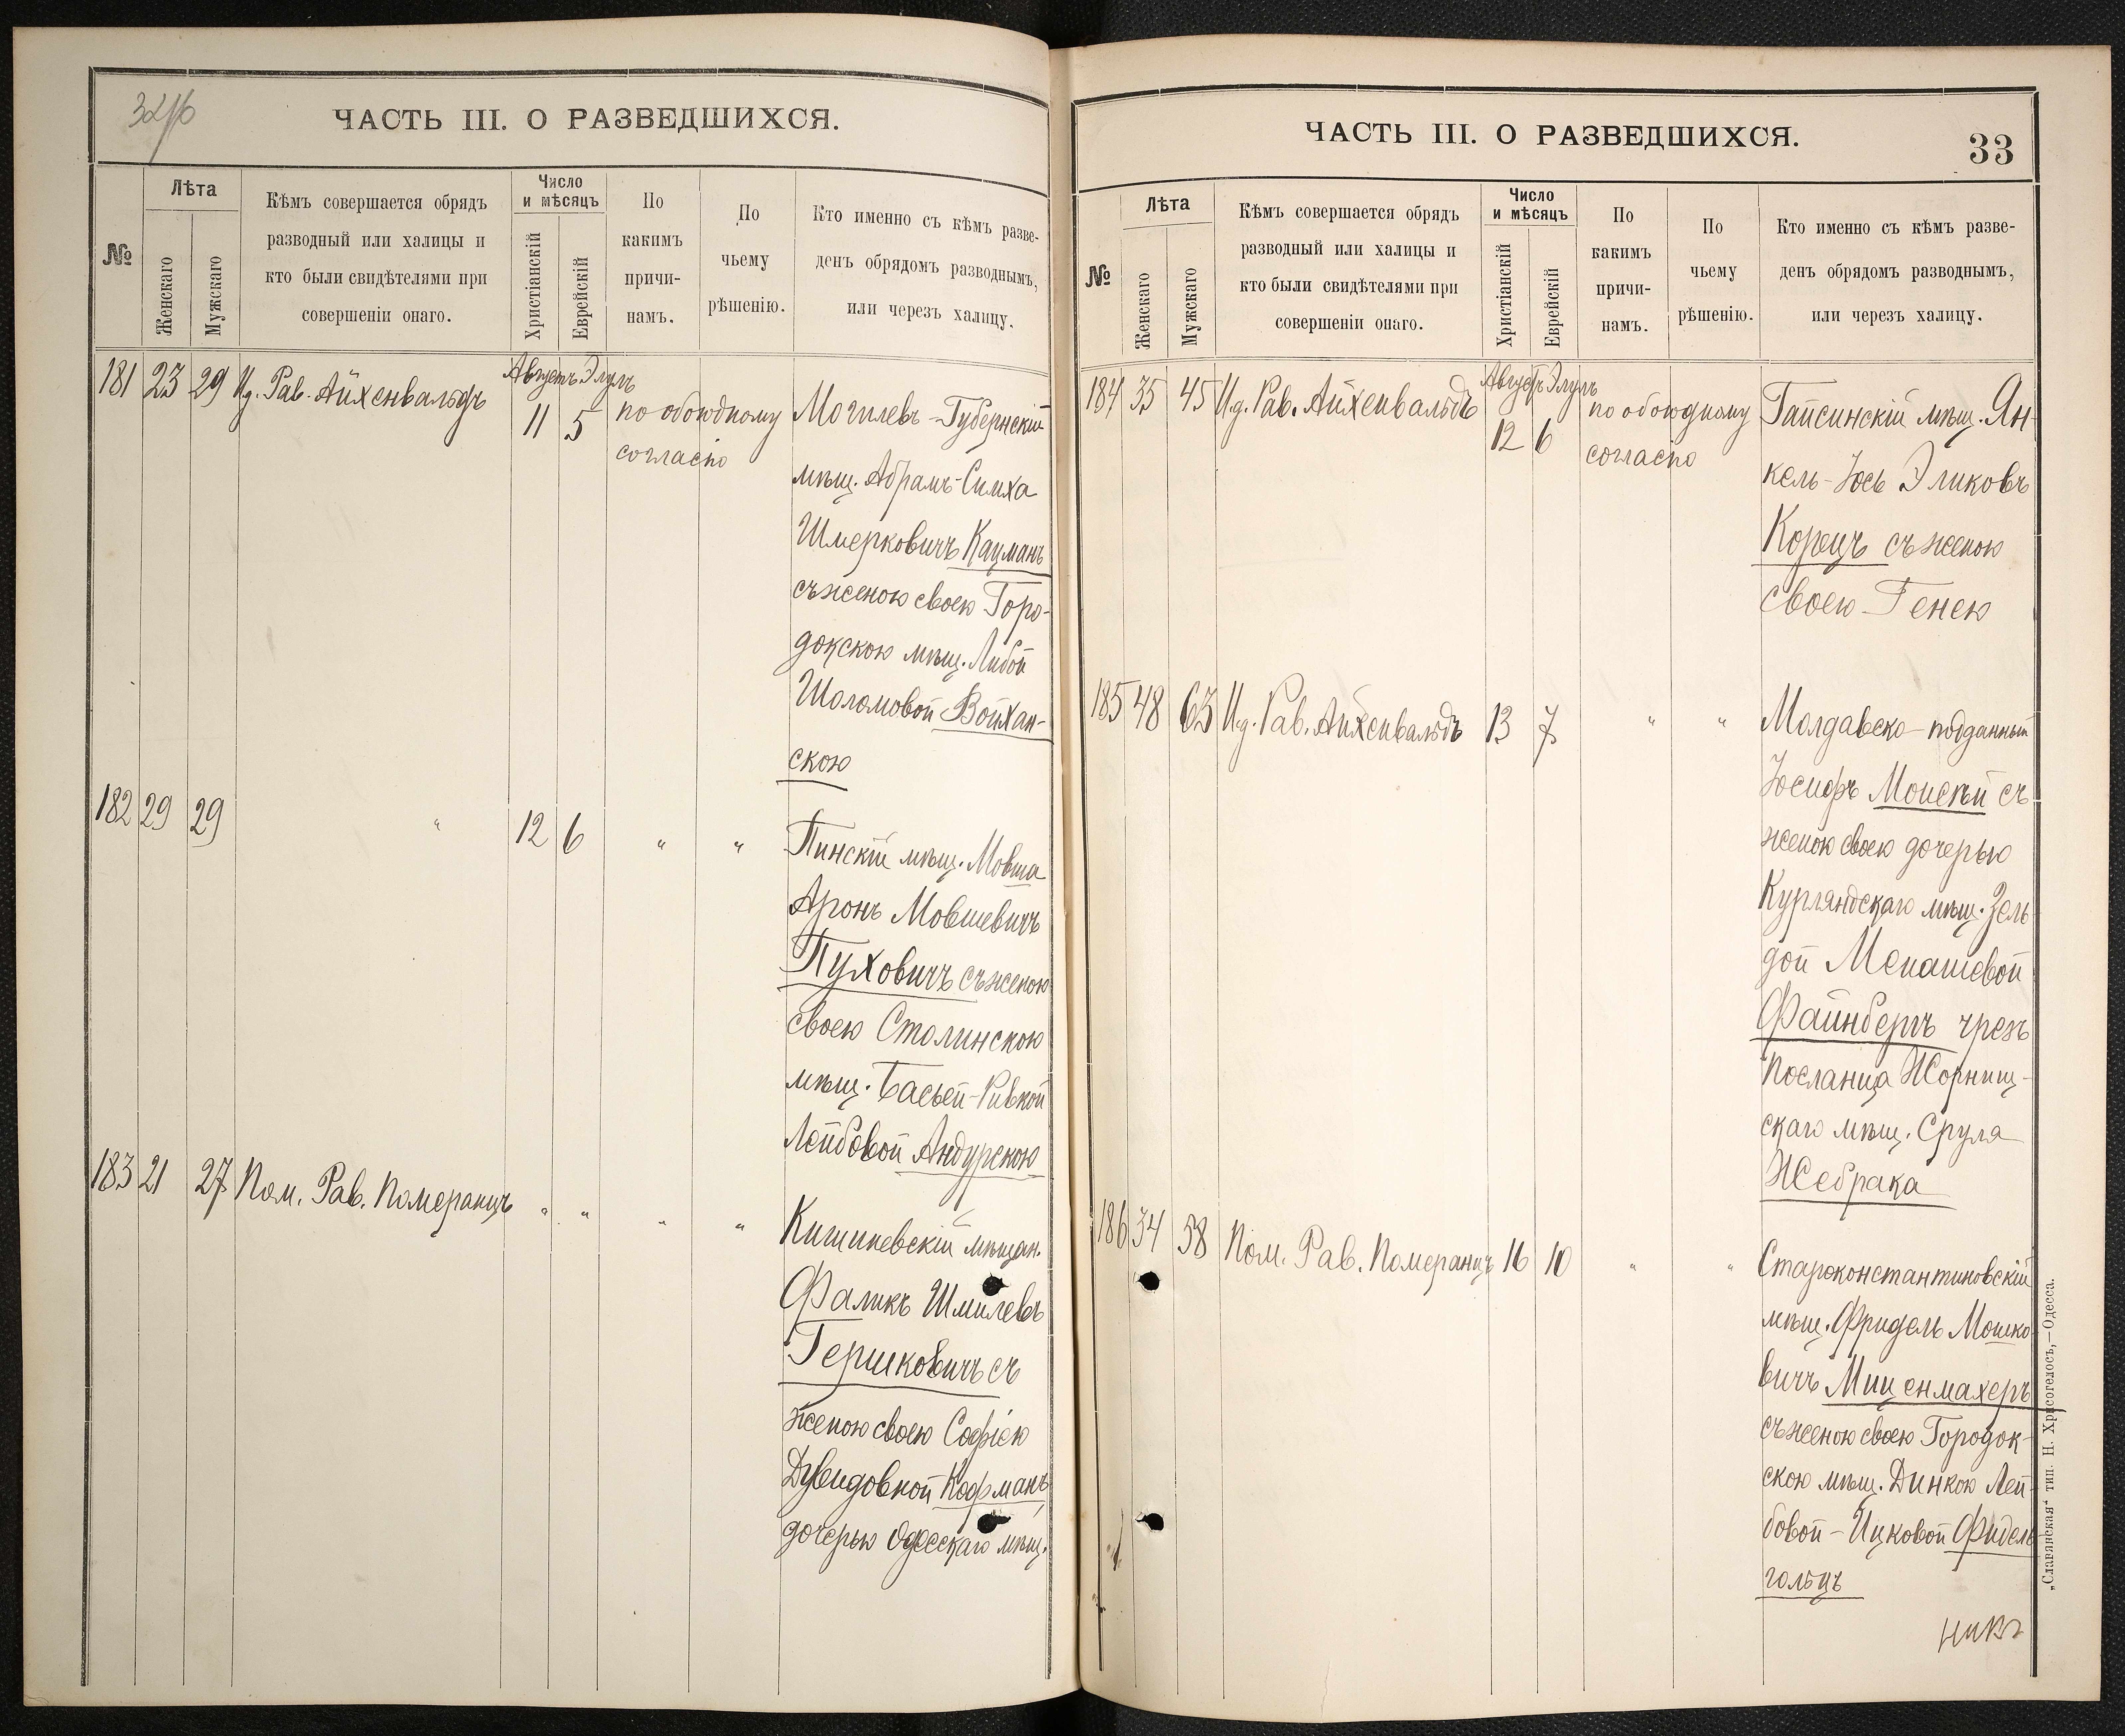 ЧАСТЬ III. О РАЗВЕДШИХСЯ.
№
Лѣта
Женскаго
Мужскаго
Кѣмъ совершается обрядъ
разводный или халицы и
кто были свидѣтелями при
совершеніи онаго.
Число
и мѣсяцъ
Христіанскій
Еврейскій
По
какимъ
причи-
намъ.
По
чьему
рѣшенію.
Кто именно съ кѣмъ разве-
денъ обрядомъ разводнымъ,
или черезъ халицу.
181 23 29 Ид. Рав. Айхенвальдъ
Августъ Элулъ
11 5
по обоюдному
согласію
Могилевъ-Губернскій
мѣщ. Абрамъ-Симха
Шмерковичъ Кацманъ
съ женою своею Горо-
докскою мѣщ. Либой
Шоломовой Войхан-
скою
182 29 29 " 12 6 " "
Пинскій мѣщ. Мовша
Аронъ Мовшевичъ
Пуховичъ съ женою
своею Столинскою
мѣщ. Басьей-Ривкой
Лейбовой Андурскою
183 21 27 Пом. Рав. Померанцъ " " " "
Кишиневскій мѣщан.
Фаликъ Шмилевъ
Гершковичъ съ
женою своею Софіею
Дувидовной Кофманъ
дочерью Одесскаго мѣщ.
ЧАСТЬ III. О РАЗВЕДШИХСЯ.
33
№
Лѣта
Женскаго
Мужскаго
Кѣмъ совершается обрядъ
разводный или халицы и
кто были свидѣтелями при
совершеніи онаго.
Число
и мѣсяцъ
Христіанскій
Еврейскій
По
какимъ
причи-
намъ.
По
чьему
рѣшенію.
Кто именно съ кѣмъ разве-
денъ обрядомъ разводнымъ,
или черезъ халицу.
184 35 45 Ид. Рав. Айхенвальдъ
Августъ Элулъ
12 6
по обоюдному
согласію
Гапсинскій мѣщ. Ян-
кель-Іось Эликовъ
Корецъ съ женою
своею Генею
185 48 63 Ид. Рав. Айхенвальдъ 13 7 " "
Молдавско-подданный
Іосифъ Моискій съ
женою своею дочерью
Курляндскаго мѣщ. Зель
дой Менашевой
Файнбергъ чрезъ
посланца Жорнищ-
скаго мѣщ. Сруля
Жебрака
186 34 58 Пом. Рав. Померанцъ 16 10 " "
Староконстантиновскій
мѣщ. Фридель Мошко
вичъ Миценмахеръ
съ женою своею Городок-
скою мѣщ. Динкою Лей-
бовой-Ицковой Фидель
гольцъ
„Славянская" тип. Н. Хрисогелосъ,—Одесса.